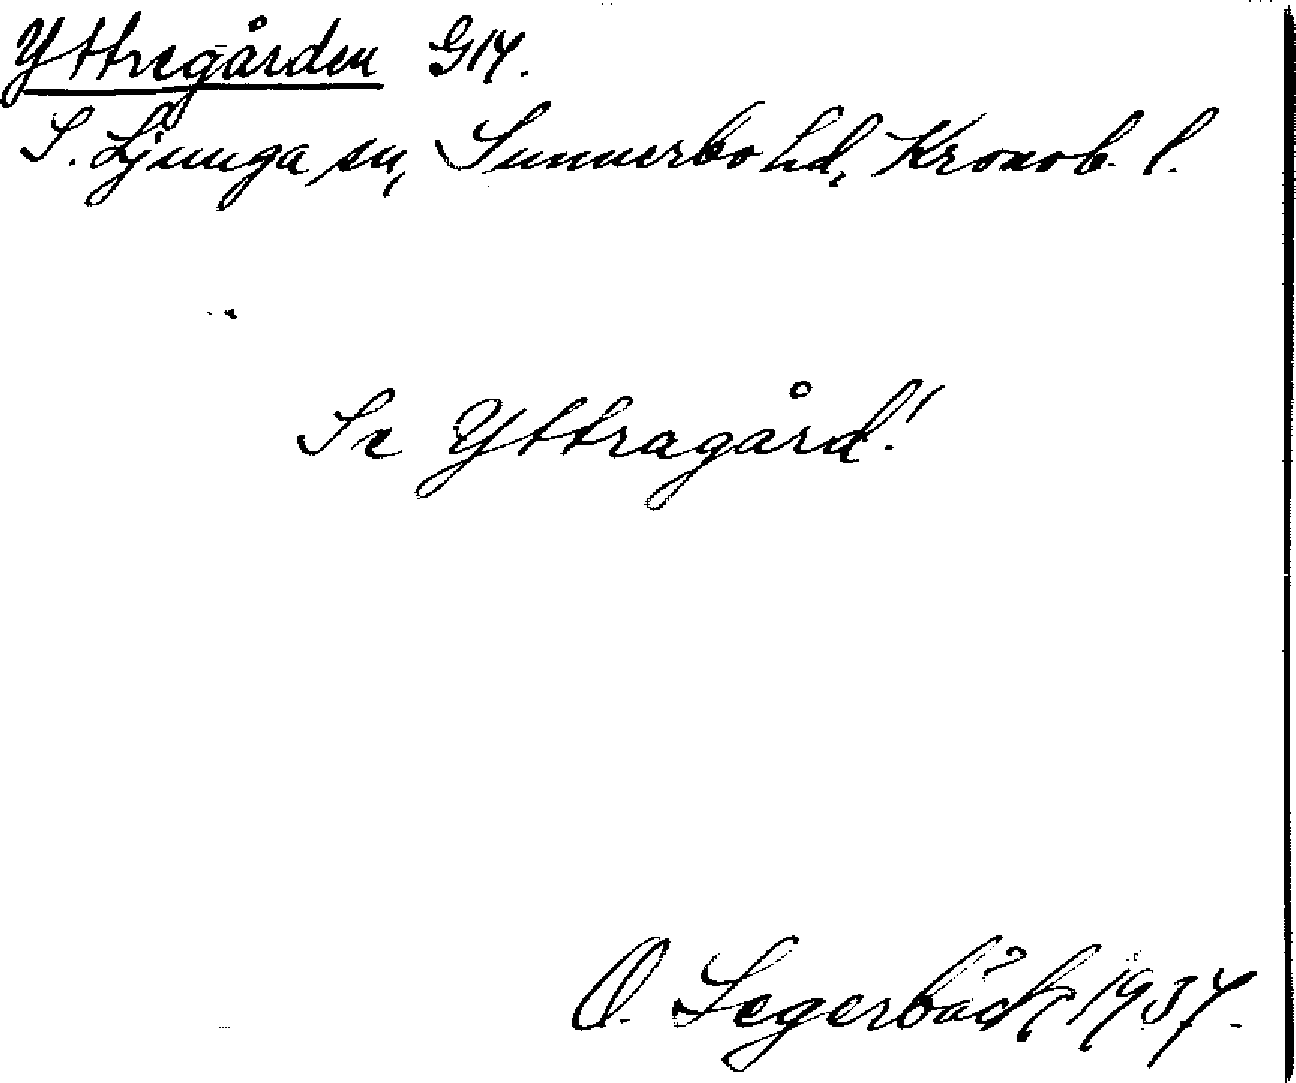 Yttregården G14.
S. Ljunga sn, Sunnerbo hd, Kronob. l.
Se Yttragård!
O. Segerbäck 1937.